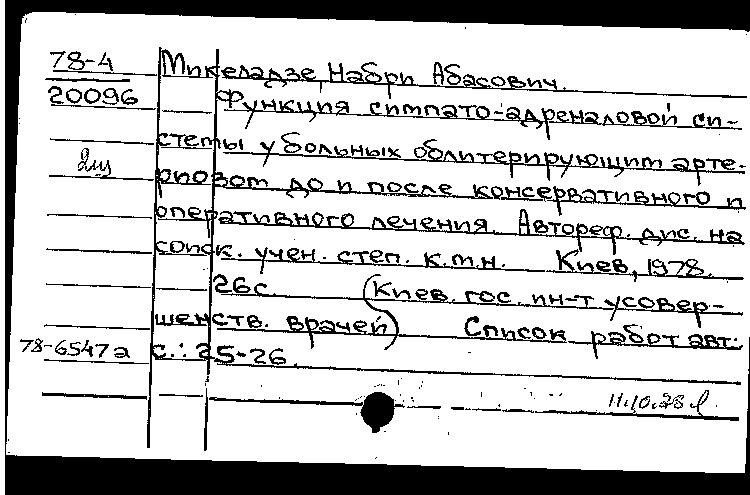 78-4 Микеладзе, Набри Абасович.
20096 Функция симпато-адреналовой си-
стемы у больных облитерирующим арте-
риозом до и после консервативного и
оперативного лечения. Автореф. дис. на
соиск. учен. степ. к.м.н. Киев, 1978.
26с. (Киев. гос. ин-т усовер-
шенств. врачей) Список работ авт.:
78-6547а с.: 25-26.
11.10.78